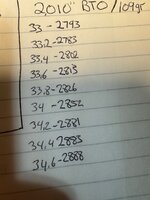 2010" BTO / 109gr
33 - 2793
33.2 - 2783
33.4 - 2802
33.6 - 2813
33.8 - 2826
34 - 2852
34.2 - 2881
34.4 2883
34.6 - 2888